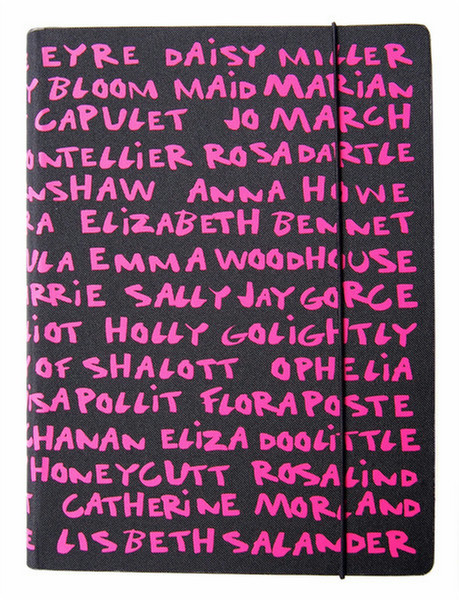 EYRE DAISY MILLER
Y BLOOM MAID MARIAN
CAPULET JO MARCH
ONTELLIER ROSA DARTLE
NSHAW ANNA HOWE
RA ELIZABETH BENNET
ULA EMMA WOODHOUSE
RRIE SALLY JAY GORCE
LIOT HOLLY GOLIGHTLY
OF SHALOTT OPHELIA
ISA POLLIT FLORA POSTE
CHANAN ELIZA DOOLITTLE
HONEYCUTT ROSALIND
CATHERINE MORLAND
E LISBETH SALANDER